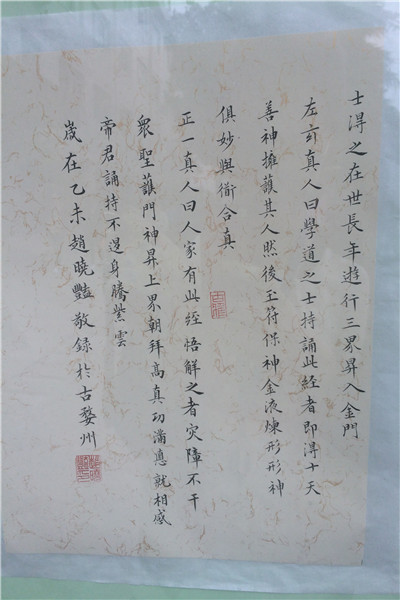 士淂之在世長年遊行三界昇入金門
左玄真人曰學道之士持誦此經者即淂十天
善神擁護其人然後玉符保神金液煉形形神
俱妙與衜合真
正一真人曰人家有此經悟解之者灾障不干
衆聖護門神昇上界朝拜高真功滿悳就相感
帝君誦持不退身騰紫雲
歲在乙未趙曉豔敬録於古婺州